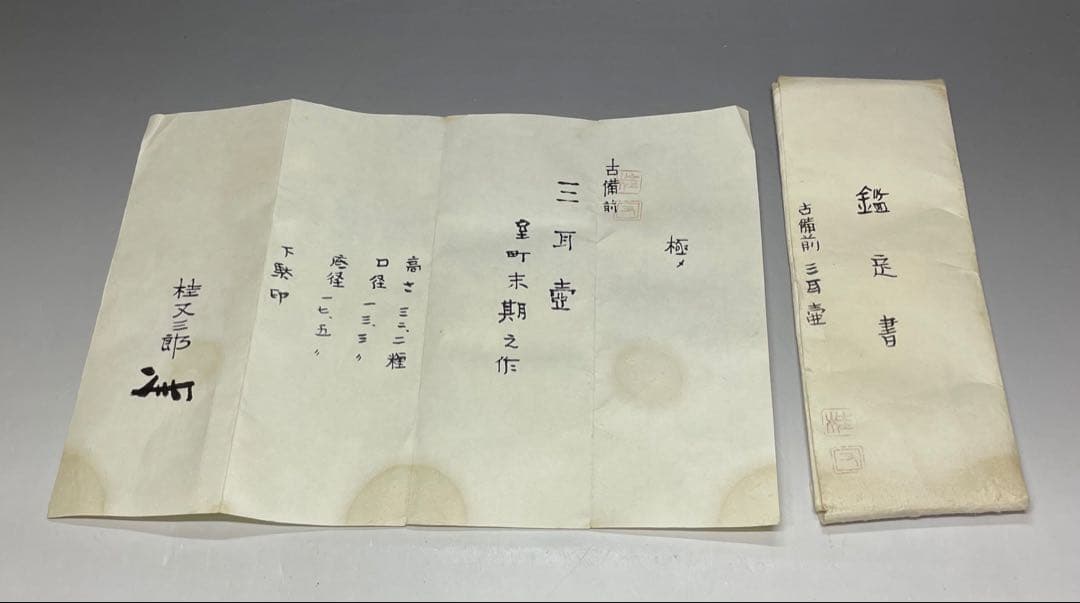 極メ
古備前
三耳壷
室町末期之作
高さ 三二、二糎
口径 一三、三〃
底径 一七、五〃
下駄印
桂又三郎
鑑定書
古備前 三耳壷